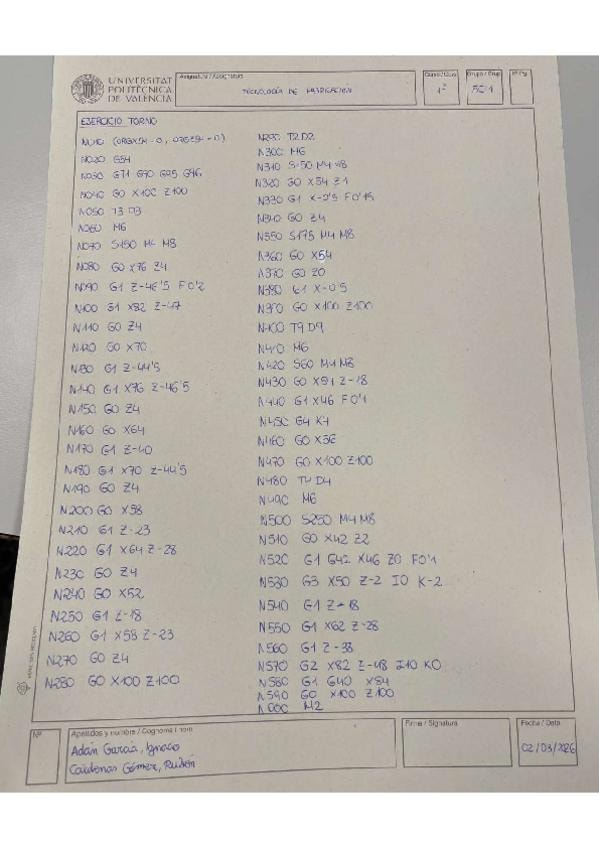 UNIVERSITAT
POLITÈCNICA
DE VALÈNCIA
Asignatura / Assignatura
TECNOLOGÍA DE FABRICACIÓN
Curso / Curs
1º
Grupo / Grup
Nº Pg.
EJERCICIO TORNO
N020 G54
N030 G71 G90 G95 G96
N040 G0 X100 Z100
N050 T3 D3
N060 M6
N070 S150 M4 M8
N080 G0 X76 Z4
N090 G1 Z-46'5 F0'2
N100 G1 X82 Z-47
N110 G0 Z4
N120 G0 X70
N130 G1 Z-44'5
N140 G1 X76 Z-46'5
N150 G0 Z4
N160 G0 X64
N170 G1 Z-40
N180 G1 X70 Z-44'5
N190 G0 Z4
N200 G0 X58
N210 G1 Z-23
N220 G1 X64 Z-28
N230 G0 Z4
N240 G0 X52
N250 G1 Z-18
N260 G1 X58 Z-23
N270 G0 Z4
N280 G0 X100 Z100
N290 T2 D2
N300 M6
N310 S150 M4 M8
N320 G0 X54 Z1
N330 G1 X-0'5 F0'15
N340 G0 Z4
N350 S175 M4 M8
N360 G0 X54
N370 G0 Z0
N380 G1 X-0'5
N390 G0 X100 Z100
N400 T9 D9
N410 M6
N420 S60 M4 M8
N430 G0 X51 Z-18
N440 G1 X46 F0'1
N450 G4 K4
N460 G0 X56
N470 G0 X100 Z100
N480 T4 D4
N490 M6
N500 S250 M4 M8
N510 G0 X42 Z2
N520 G1 G42 X46 Z0 F0'1
N530 G3 X50 Z-2 I0 K-2
N540 G1 Z-18
N550 G1 X62 Z-28
N560 G1 Z-38
N570 G2 X82 Z-48 I10 K0
N580 G1 G40 X84
N590 G0 X100 Z100
N600 M2
Nº
Apellidos y nombre / Cognoms i nom
Adán García, Ignacio
Cárdenas Gómez, Rubén
Firma / Signatura
Fecha / Data
02/03/2026